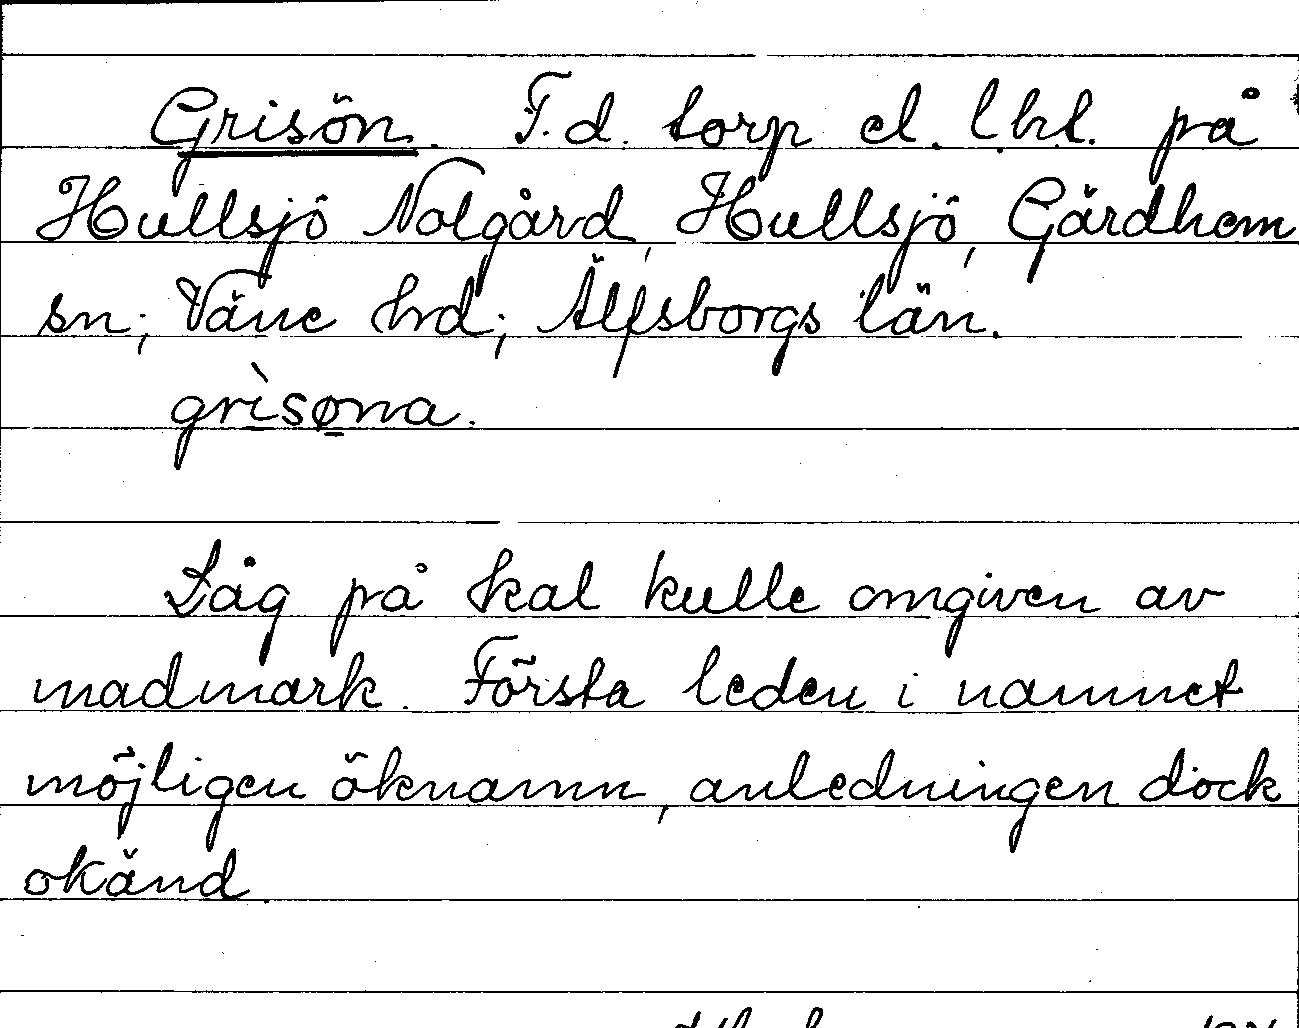 Grisön. F.d. torp el. lht. på
Hullsjö Nolgård, Hullsjö, Gärdhem
sn; Väne hrd; Älfsborgs län.
grìsøna.
Låg på kal kulle omgiven av
madmark. Första leden i namnet
möjligen öknamn, anledningen dock
okänd.